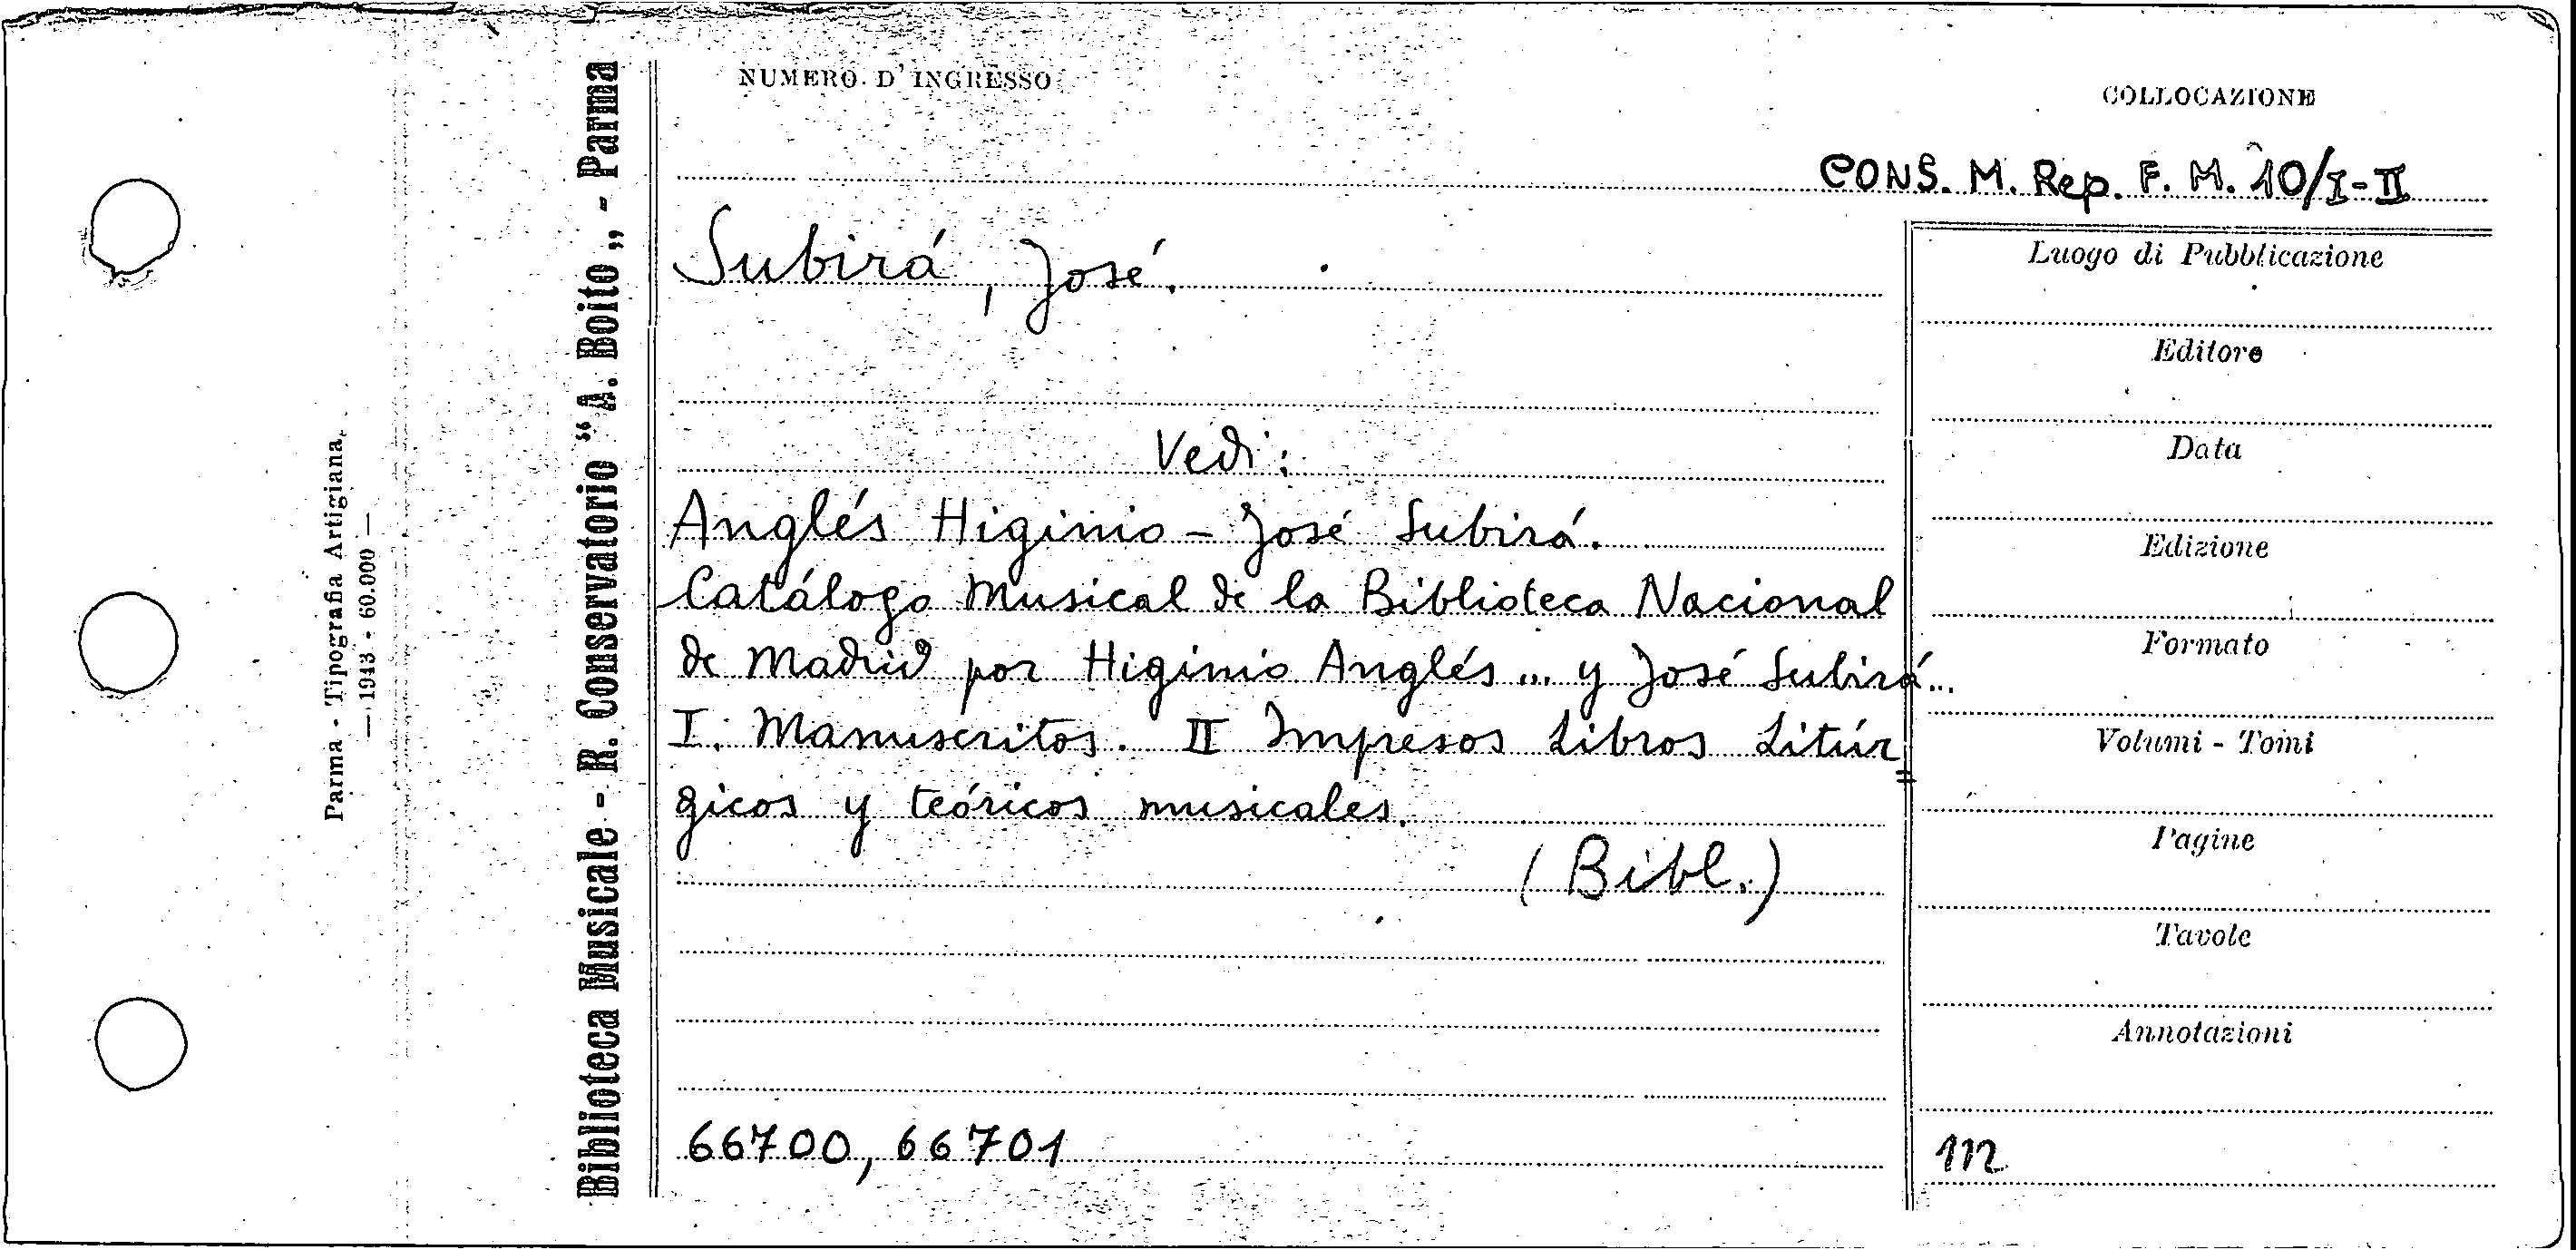 Parma - Tipografia Artigiana
— 1943 - 60.000 —
Biblioteca Musicale - R. Conservatorio “A. Boito„ - Parma
NUMERO D'INGRESSO
COLLOCAZIONE
CONS. M. Rep. F. M. 10/I-II
Subirá, José.
Vedi:
Anglés Higinio - José Subirá.
Catálogo Musical de la Biblioteca Nacional
de Madrid por Higinio Anglés ... y José Subirá...
I. Manuscritos. II Impresos Libros Litúr=
gicos y teóricos musicales.
(Bibl.)
66700, 66701
Luogo di Pubblicazione
Editore
Data
Edizione
Formato
Volumi - Tomi
Pagine
Tavole
Annotazioni